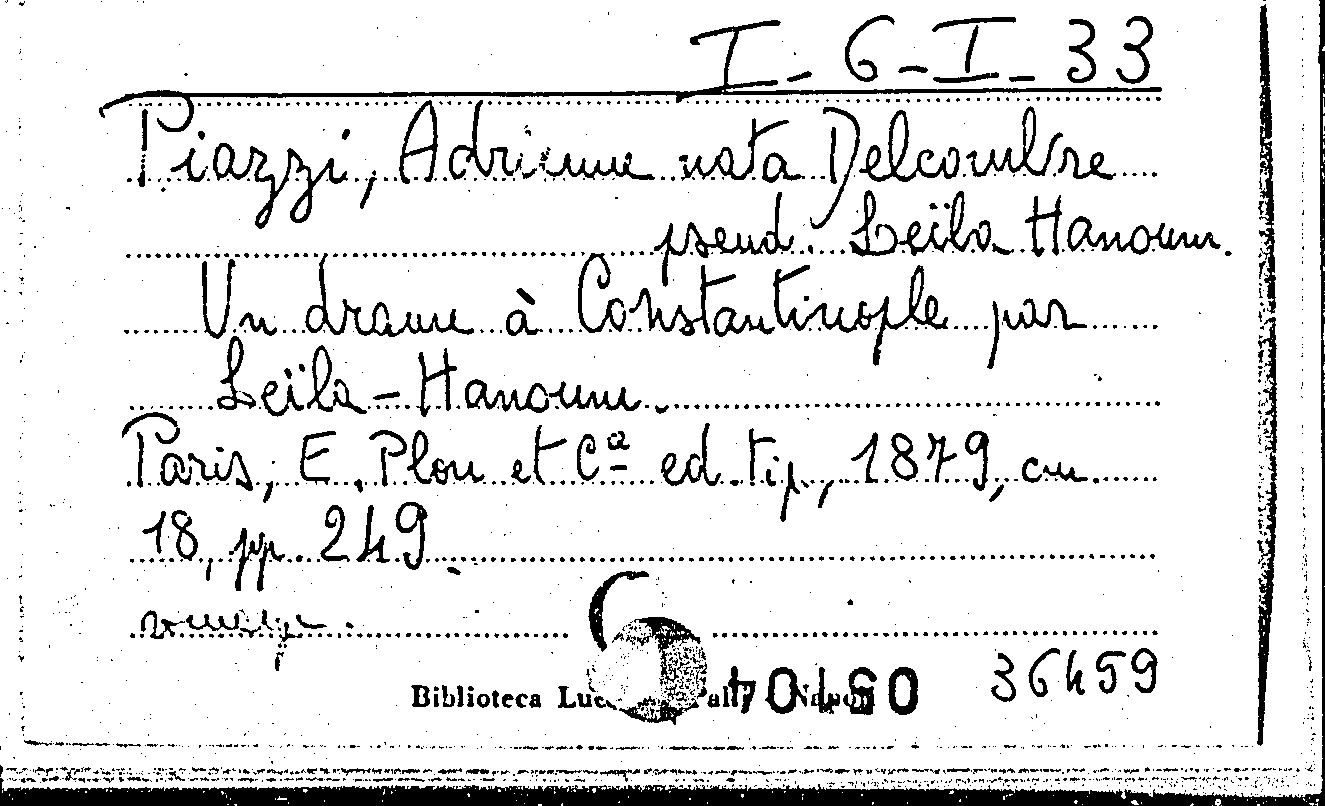 I-6-I-33
Piazzi, Adrienne nata Delcombre
pseud. Leïla Hanoum.
Un drame à Constantinople par
Leïla-Hanoum.
Paris, E. Plon et Cª ed. tip., 1879, cm.
18, pp. 249.
36459
Biblioteca